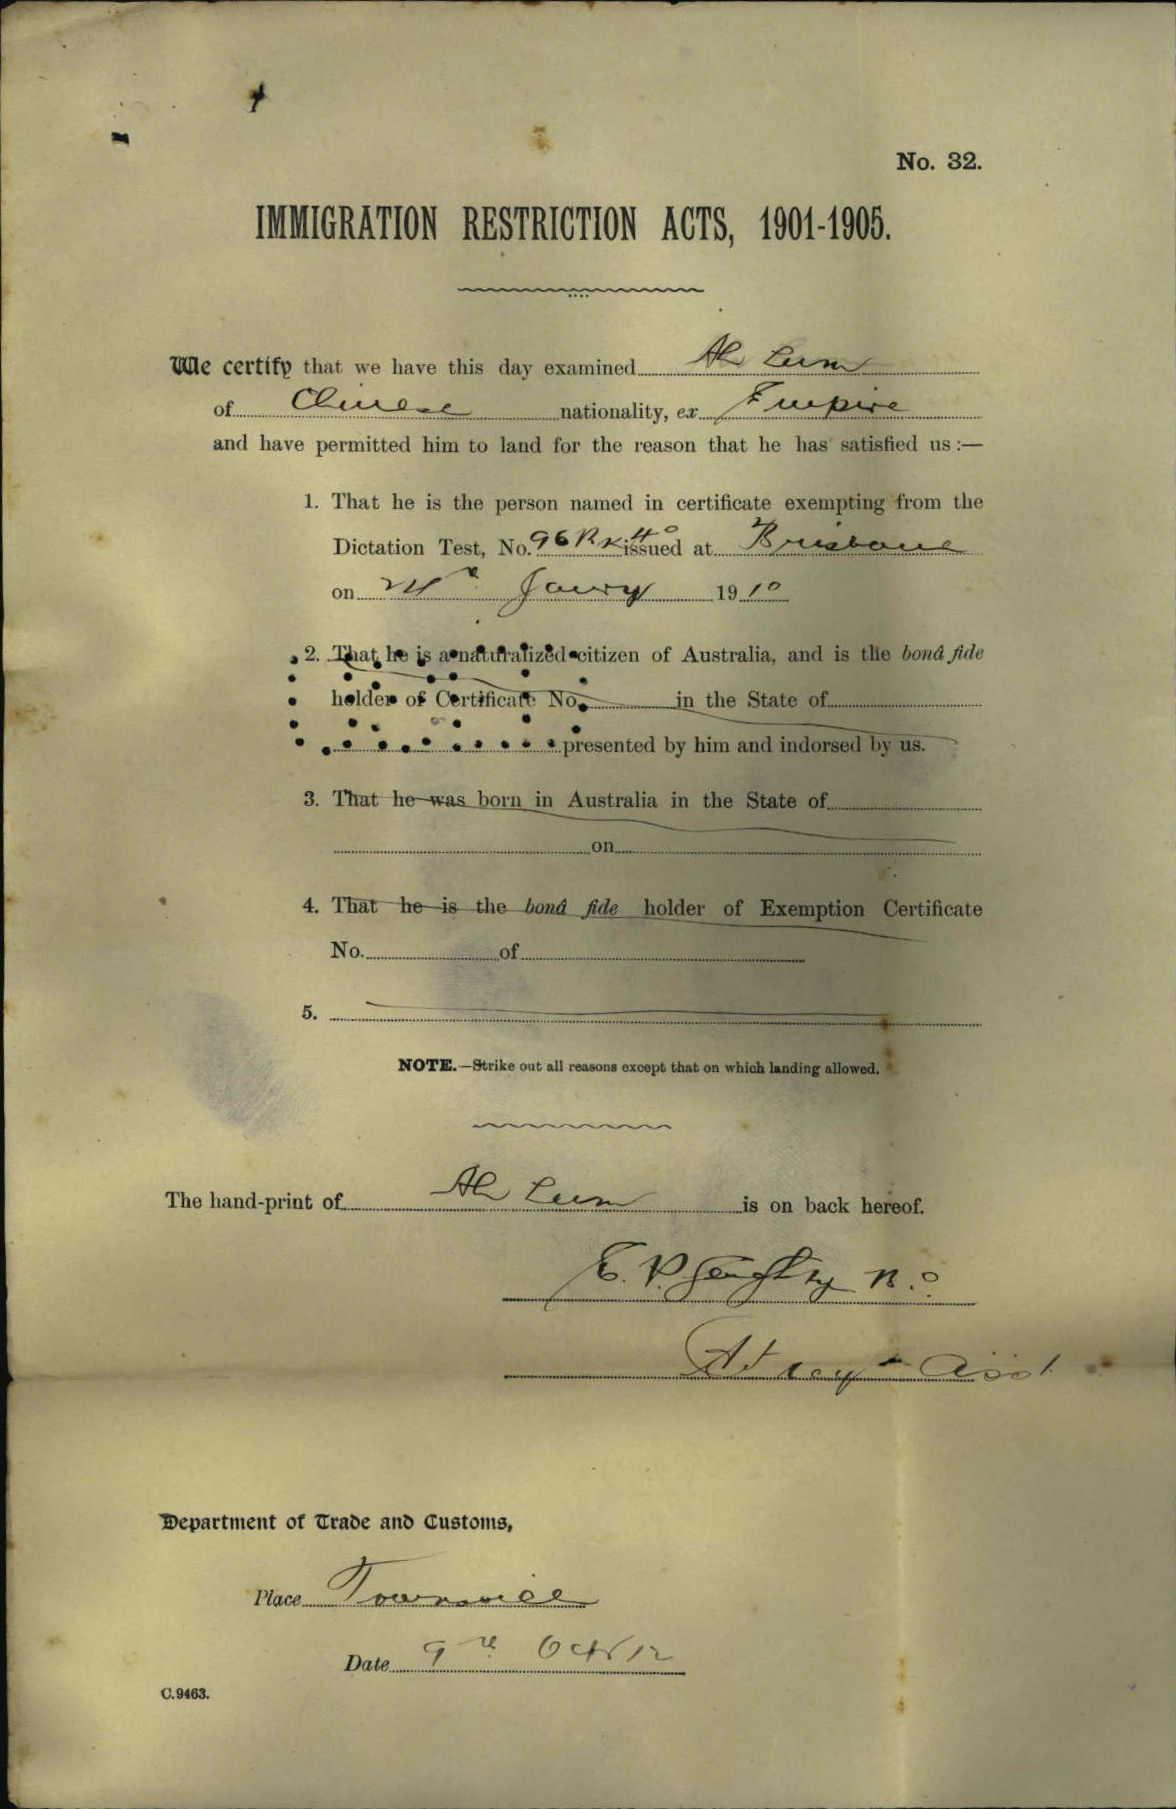 No. 32.
IMMIGRATION RESTRICTION ACTS, 1901-1905.
We certify that we have this day examined Ah Lum
of Chinese nationality, ex Empire
and have permitted him to land for the reason that he has satisfied us :—
1. That he is the person named in certificate exempting from the
Dictation Test, No. 96 issued at Brisbane
on 24th Jany 1910
2. That he is a naturalized citizen of Australia, and is the bonâ fide
holder of Certificate No. in the State of
presented by him and indorsed by us.
3. That he was born in Australia in the State of
on
4. That he is the bonâ fide holder of Exemption Certificate
No. of
5.
NOTE.—Strike out all reasons except that on which landing allowed.
The hand-print of Ah Lum is on back hereof.
E. P.
Asst
Department of Trade and Customs,
Place Townsville
Date 9th Oct 12
C.9463.